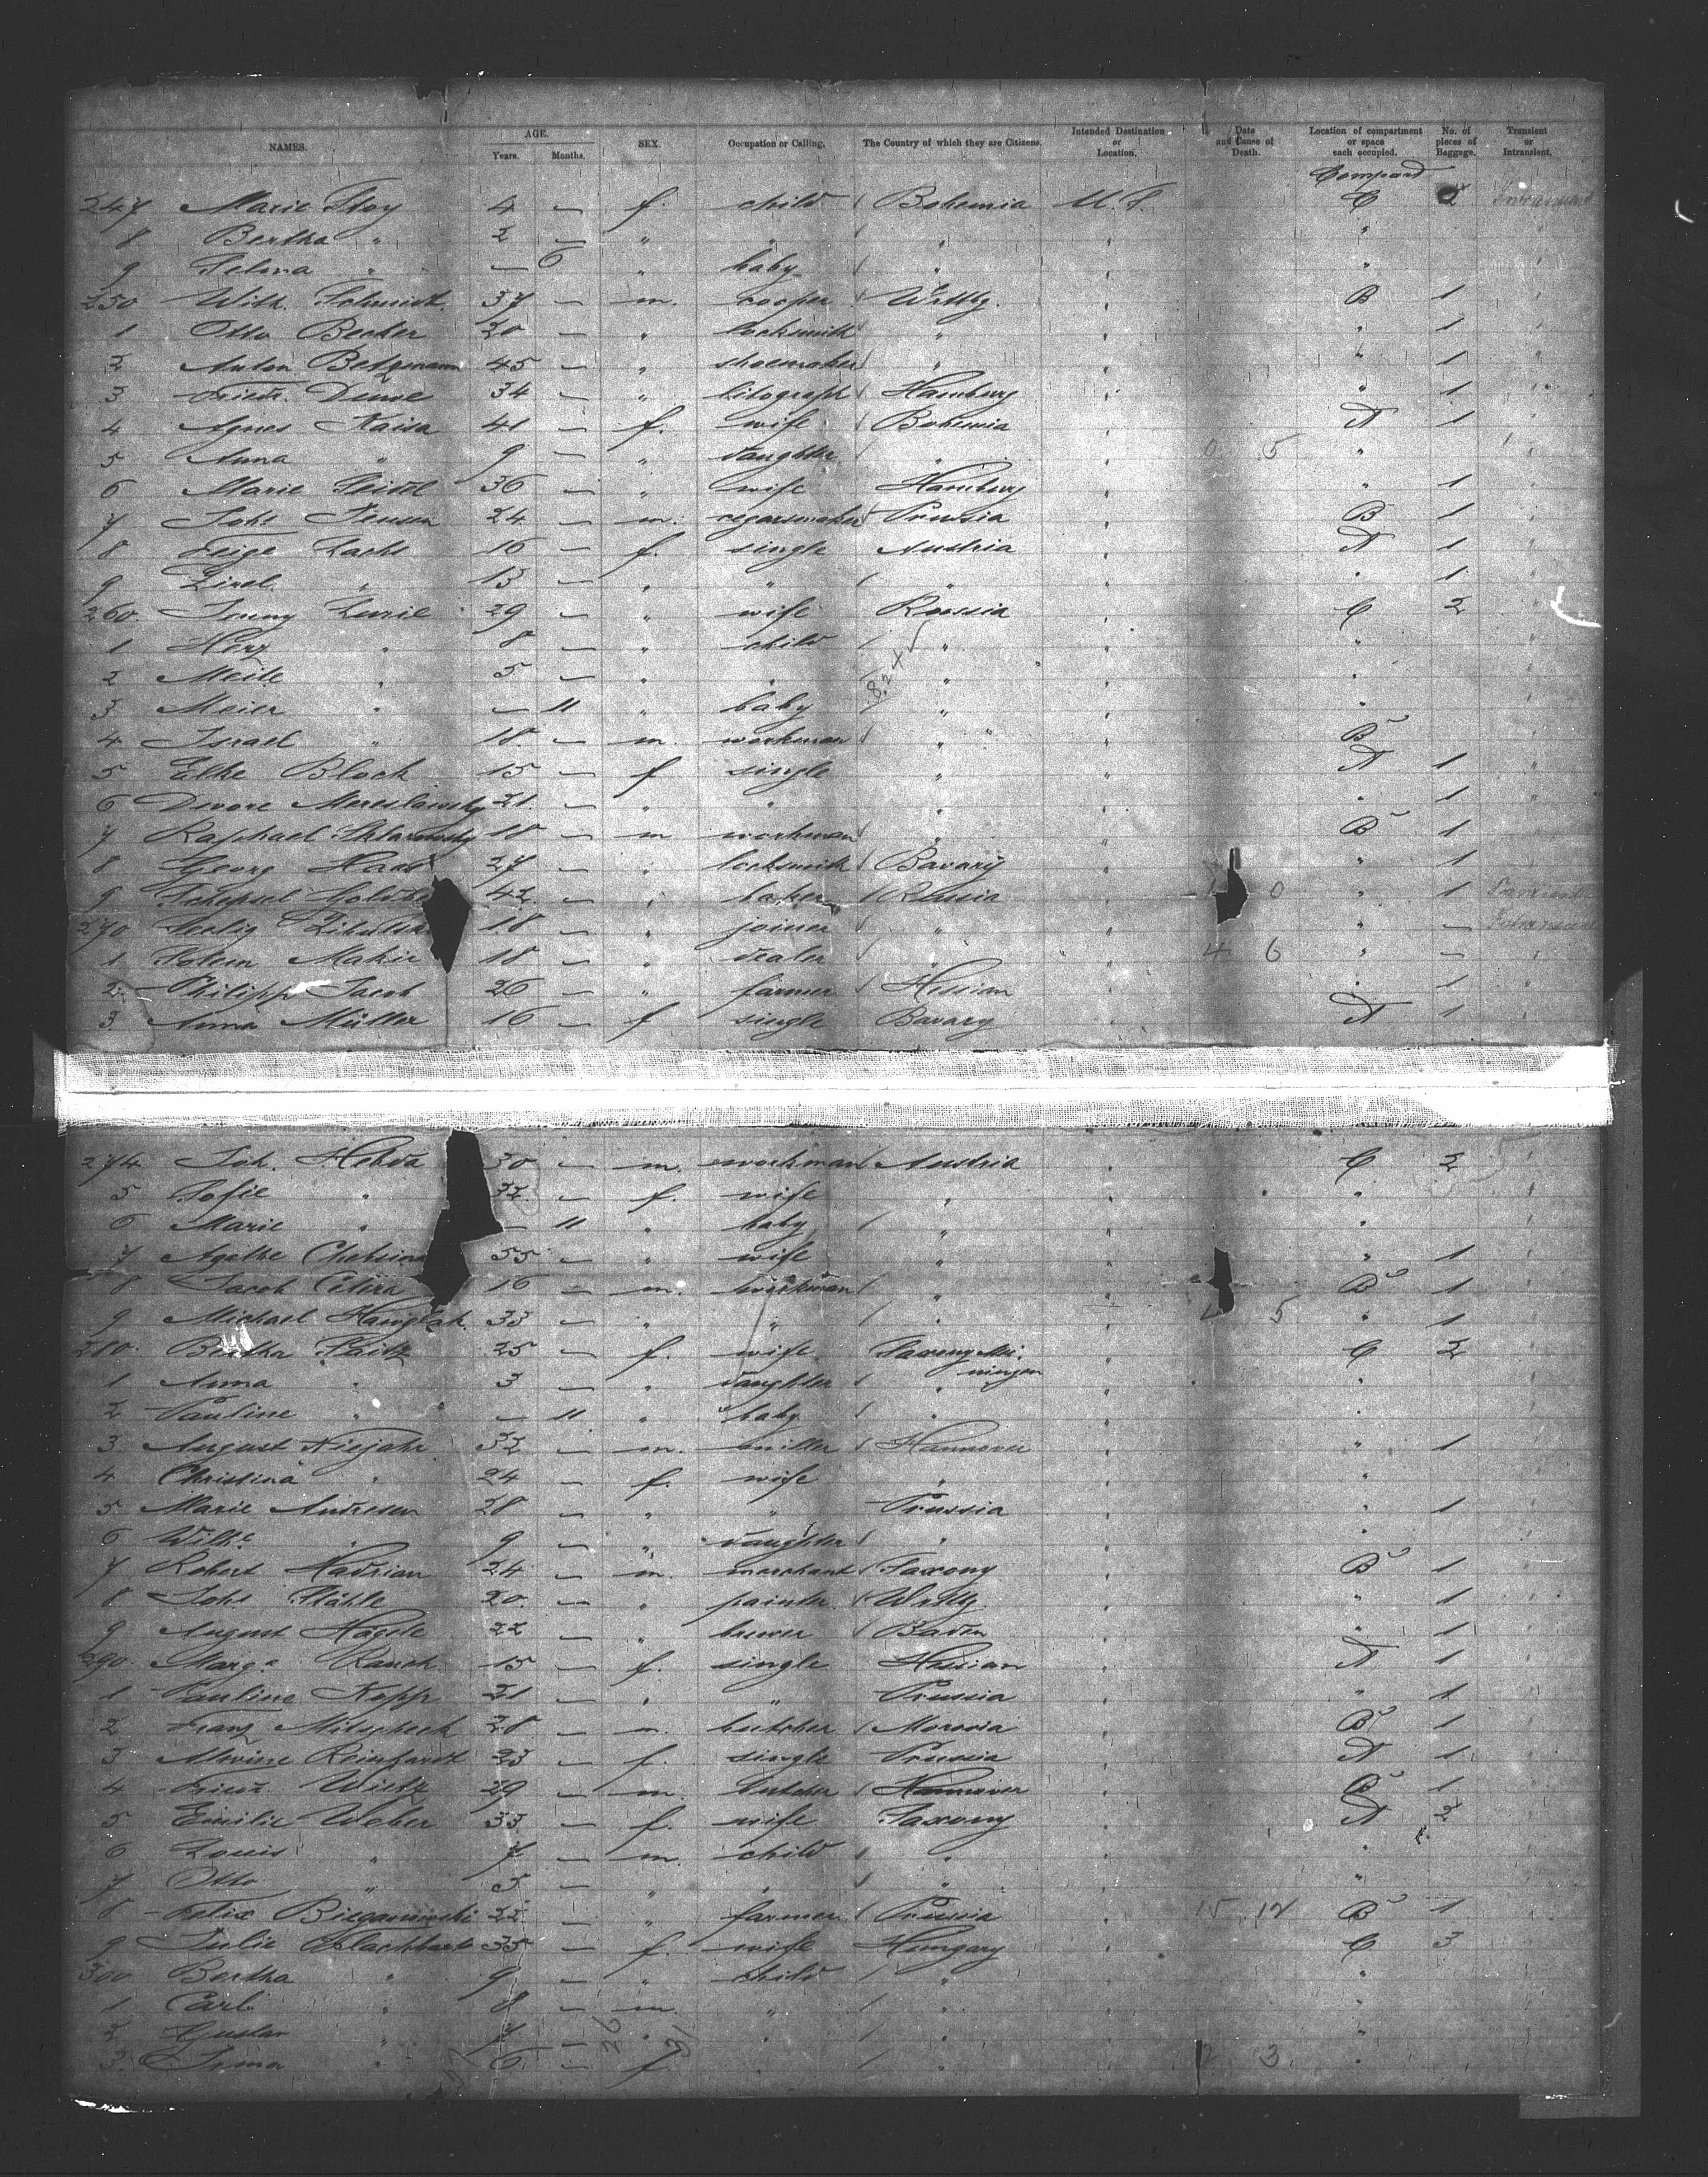 NAMES. AGE. Years. Months. SEX. Occupation or Calling. The Country of which they are Citizens. Intended Destination or Location. Date and Cause of Death. Location of compartment or space each occupied. No. of pieces of Baggage. Transient or Intransient.
Compard
247 Marie Stoy 4 — f. child / Bohemia U.S. C 2
8 Bertha " 2 — " " / " " "
9 Selma " — 6 " baby / " " "
250 Wilh. Schmidt 37 — m. cooper / Wrttbg. " B 1
1 Otto Becker 20 — " locksmith / " " " 1
2 Anton Betzmann 45 — " shoemaker / " " " 1
3 Friedr. Demse 34 — " litograph / Hamburg " " 1
4 Agnes Kaisa 41 — f. wife / Bohemia " A 1
5 Anna " 9 — " daughter / " " 0 5 "
6 Marie Seidel 36 — " wife Hamburg " " 1
7 Johs Jensen 24 — m. cegarsmaker / Prussia " B 1
8 Feige Lachs 16 — f. single Austria " A 1
9 Zirel " 13 — " " / " " " 1
260. Jenny Lurie 29 — " wife Russia " C 2
1 Herz " 8 — " child / " " "
2 Meite 5 — " " / " " "
3 Meier " — 11 " baby / " " "
4 Israel " 18. — m. workman / " " B
5 Elke Bloch 15 — f single " " A 1
6 Dwore Mereslawsky 21. — " " " " " 1
7 Raphael Sklarewsky 18 — m workman / " " B 1
8 Georg 27 — " locksmith / Bavary " " 1
9 Schepsel 42 — " baker / Russia 0 " 1 Transient
270 Seelig 18 — " joiner / " " " —
1 Makir 18 — " dealer / " " 4 6 " —
2 Philipp Jacob 26 — " farmer / Hessian " " 1
3 Anna Müller 16 — f single Bavary " A 1
274 Joh. Hebda 30 — m. workman Austria " C 2
5 Sofie " 32 — f. wife " " "
6 Marie " — 11 " baby / " " "
7 Agathe 55 — " wife " " " 1
8 Jacob 16 — m. workman / " " B 1
9 Michael 33 — " " / " " 5 " 1
280. Bertha 25 — f. wife Saxony Mei- " C 2
ningen
1 Anna " 3 — " daughter / " " "
2 Pauline " — 11 " baby / " " "
3. August Niejahr 32 — m. miller / Hannover " " 1
4 Christina " 24 — f. wife " " "
5. Marie Andresen 28 — " " Prussia " " 1
6 Wilhe " 9 — " daughter / " "
7 Robert Hadrian 24 — m. merchant / Saxony " B 1
8 Johs Stähle 20. — " painter / Wrttbg. " " 1
9 August Hägele 22 — " brewer / Baden " " 1
290. Marga Rauch 15 — f. single Hessian " A 1
1 Pauline Kopp 21 — " " Prussia " " 1
2 Franz Mitscheck 28 — m. butcher / Moravia " B 1
3 Alwine Reinhardt 23 — f. single Prussia " A 1
4 Friedr. Wirtz 29 — m. butcher / Hannover " B 1
5 Emilie Weber 33 — f. wife Saxony " A 2
6 Louis " 7 — m. child / " " "
7 Otto " 5 — " " / " " "
8 Felix Bieganowski 22. — " farmer / Prussia " 15 12 B 1
9 Julie 35 — f. wife Hungary " C 3
300 Bertha " 9 — " child / " " "
1 Carl " 8 — m. " / " " "
2 Gustav " 7 — " " / " " "
3. Irma " 6 — f " / " " 2 3 "